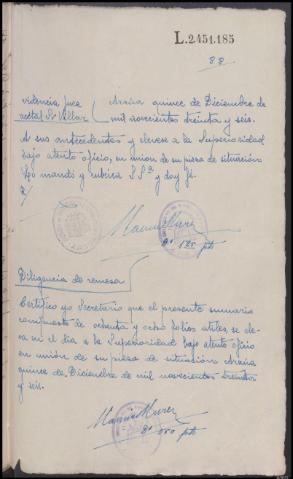 L.2451.185
88
Providencia Juez Araña quince de Diciembre de
acctal Sr Villar mil novecientos treinta y seis.
A sus antecedentes y elevese a la Superioridad
bajo atento oficio, en union de su pieza de situación
Lo mandó y rubrica S Sª y doy fe.
Diligencia de remesa
Certifico yo Secretario que el presente sumario
compuesto de ochenta y ocho folios utiles, se ele-
va en el dia a la Superioridad bajo atento oficio
en unión de su pieza de situación
quince de Diciembre de mil novecientos treinta
y seis.